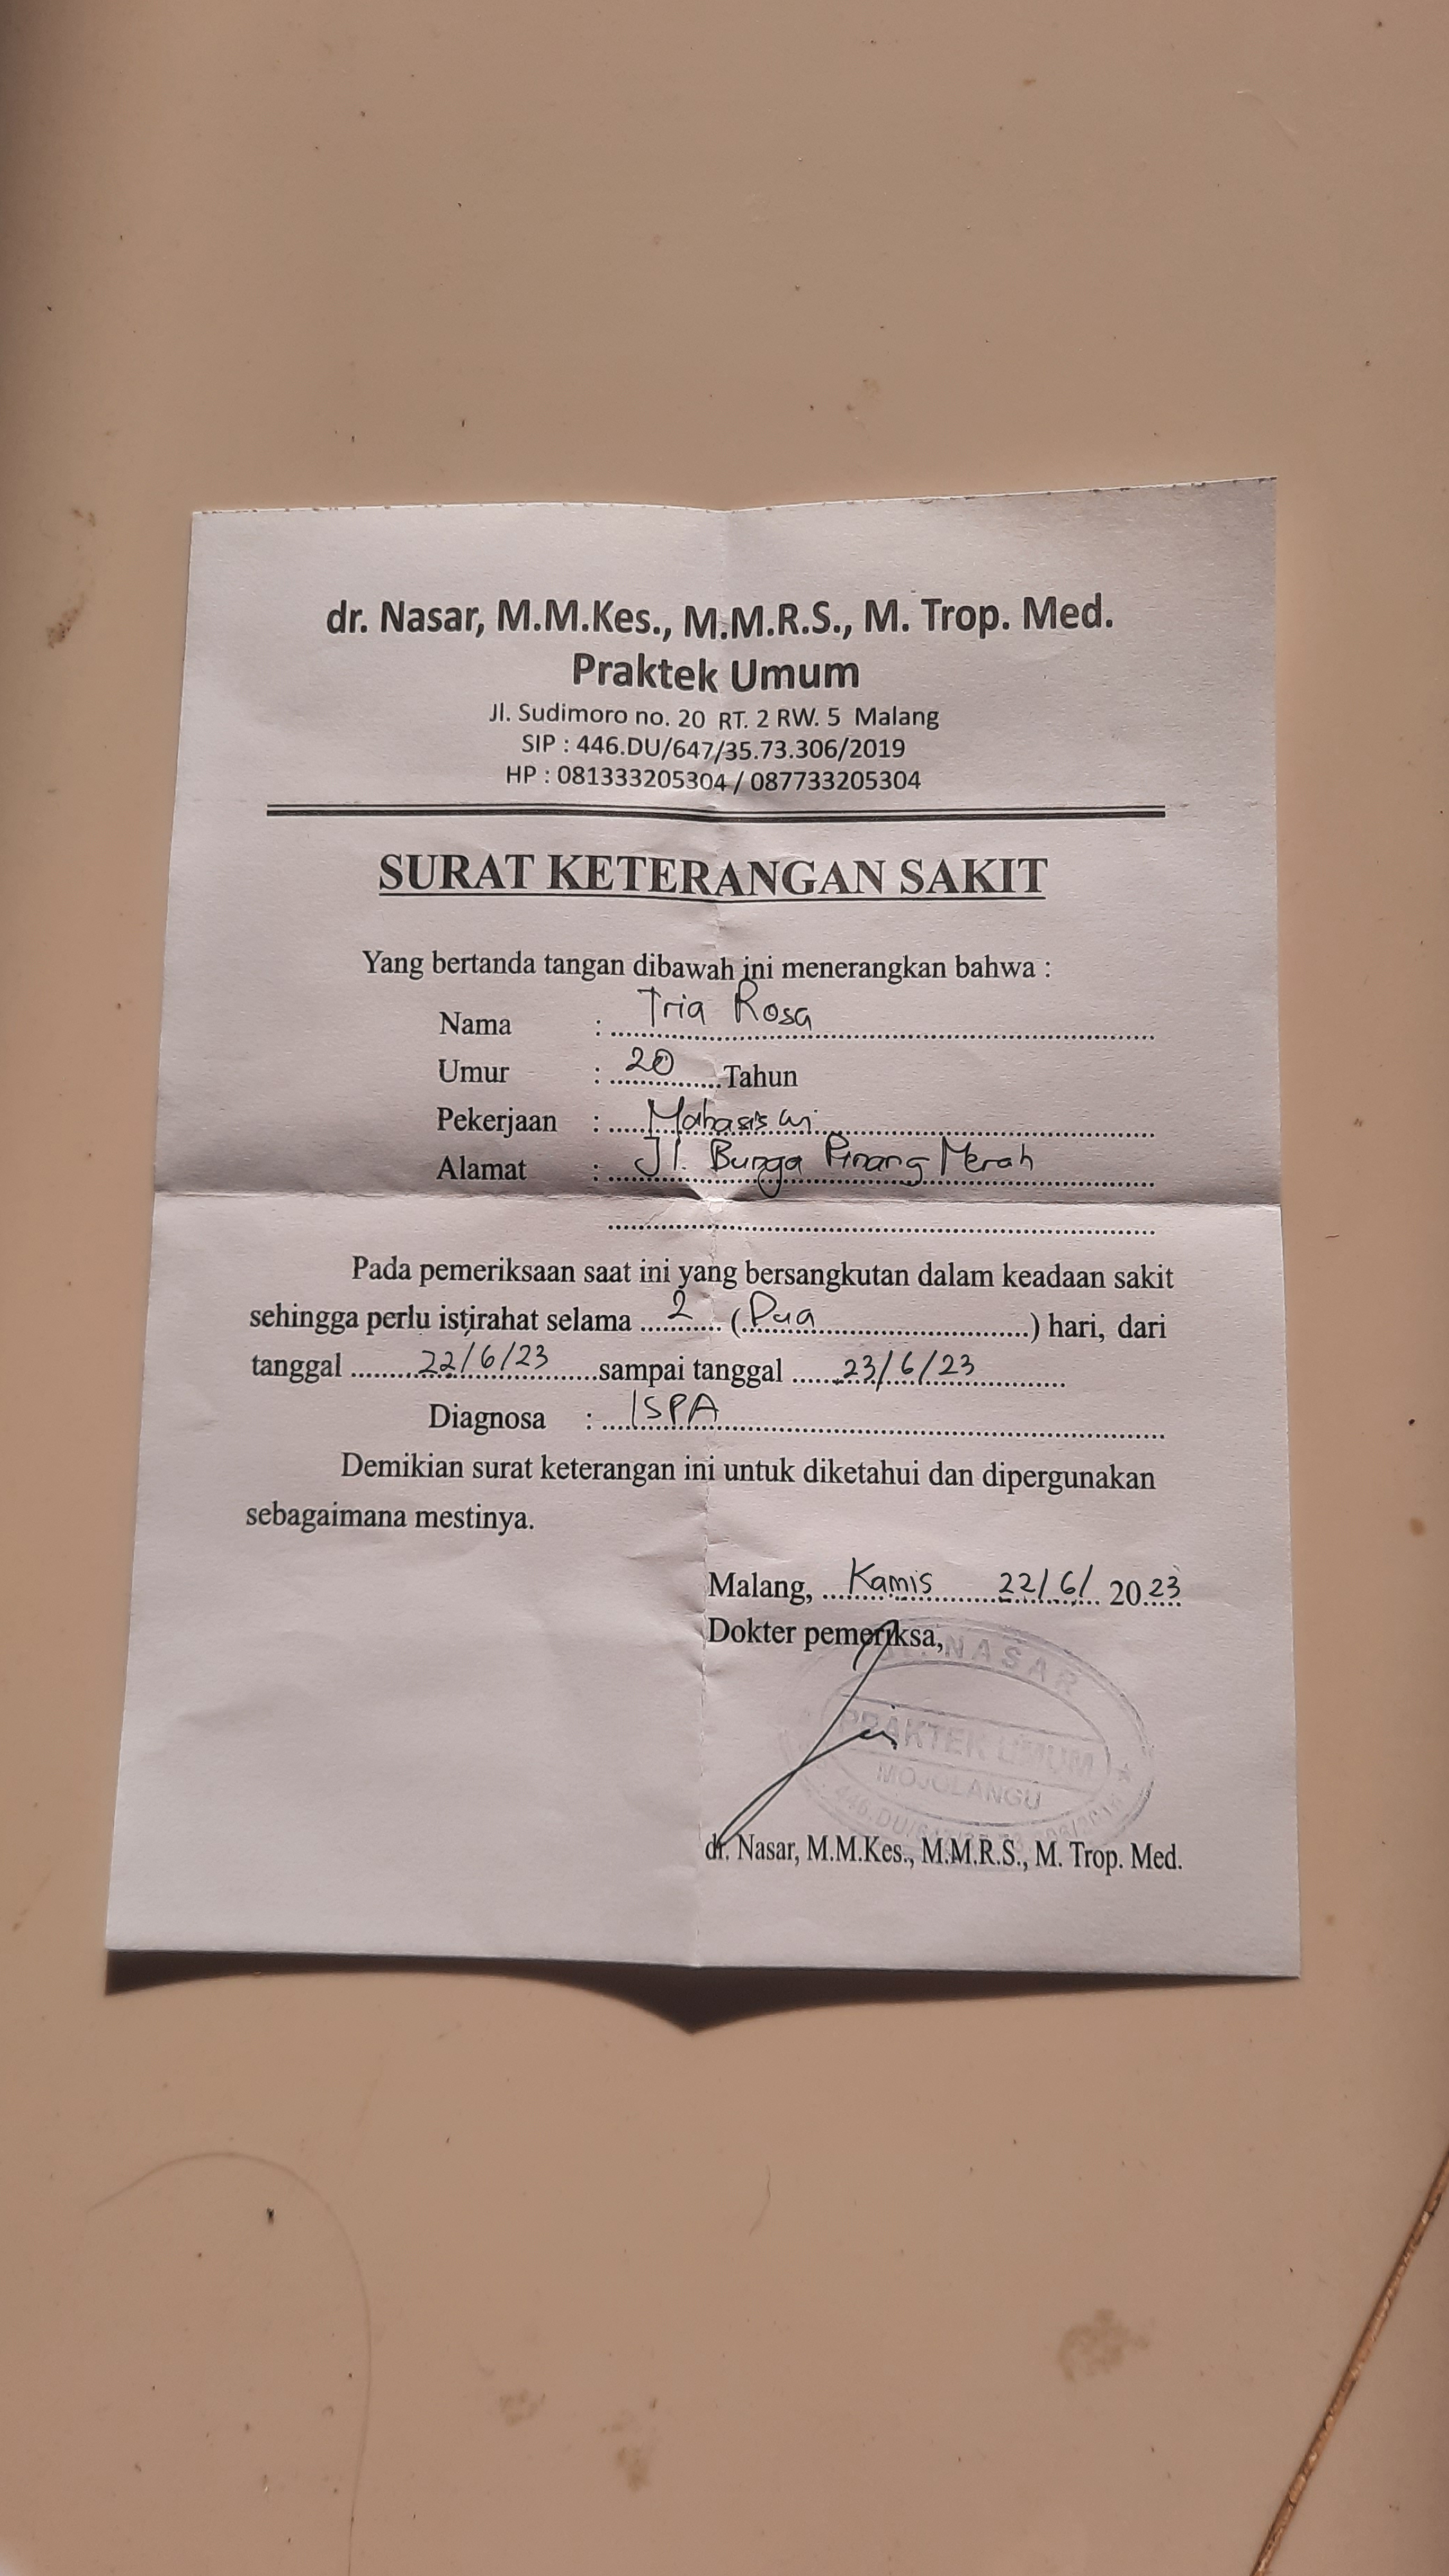 dr. Nasar, M.M.Kes., M.M.R.S., M. Trop. Med.
Praktek Umum
Jl. Sudimoro no. 20 RT. 2 RW. 5 Malang
SIP : 446.DU/647/35.73.306/2019
HP : 081333205304 / 087733205304
SURAT KETERANGAN SAKIT
Yang bertanda tangan dibawah ini menerangkan bahwa :
Nama : Tria Rosa
Umur : 20 Tahun
Pekerjaan : Mahasiswi
Alamat : Jl. Bunga Pinang Merah
Pada pemeriksaan saat ini yang bersangkutan dalam keadaan sakit
sehingga perlu istirahat selama 2 (Dua) hari, dari
tanggal 22/6/23 sampai tanggal 23/6/23
Diagnosa : ISPA
Demikian surat keterangan ini untuk diketahui dan dipergunakan
sebagaimana mestinya.
Malang, Kamis 22/6/ 2023
Dokter pemeriksa,
NASAR
PRAKTEK UMUM
MOJOLANGU
dr. Nasar, M.M.Kes., M.M.R.S., M. Trop. Med.